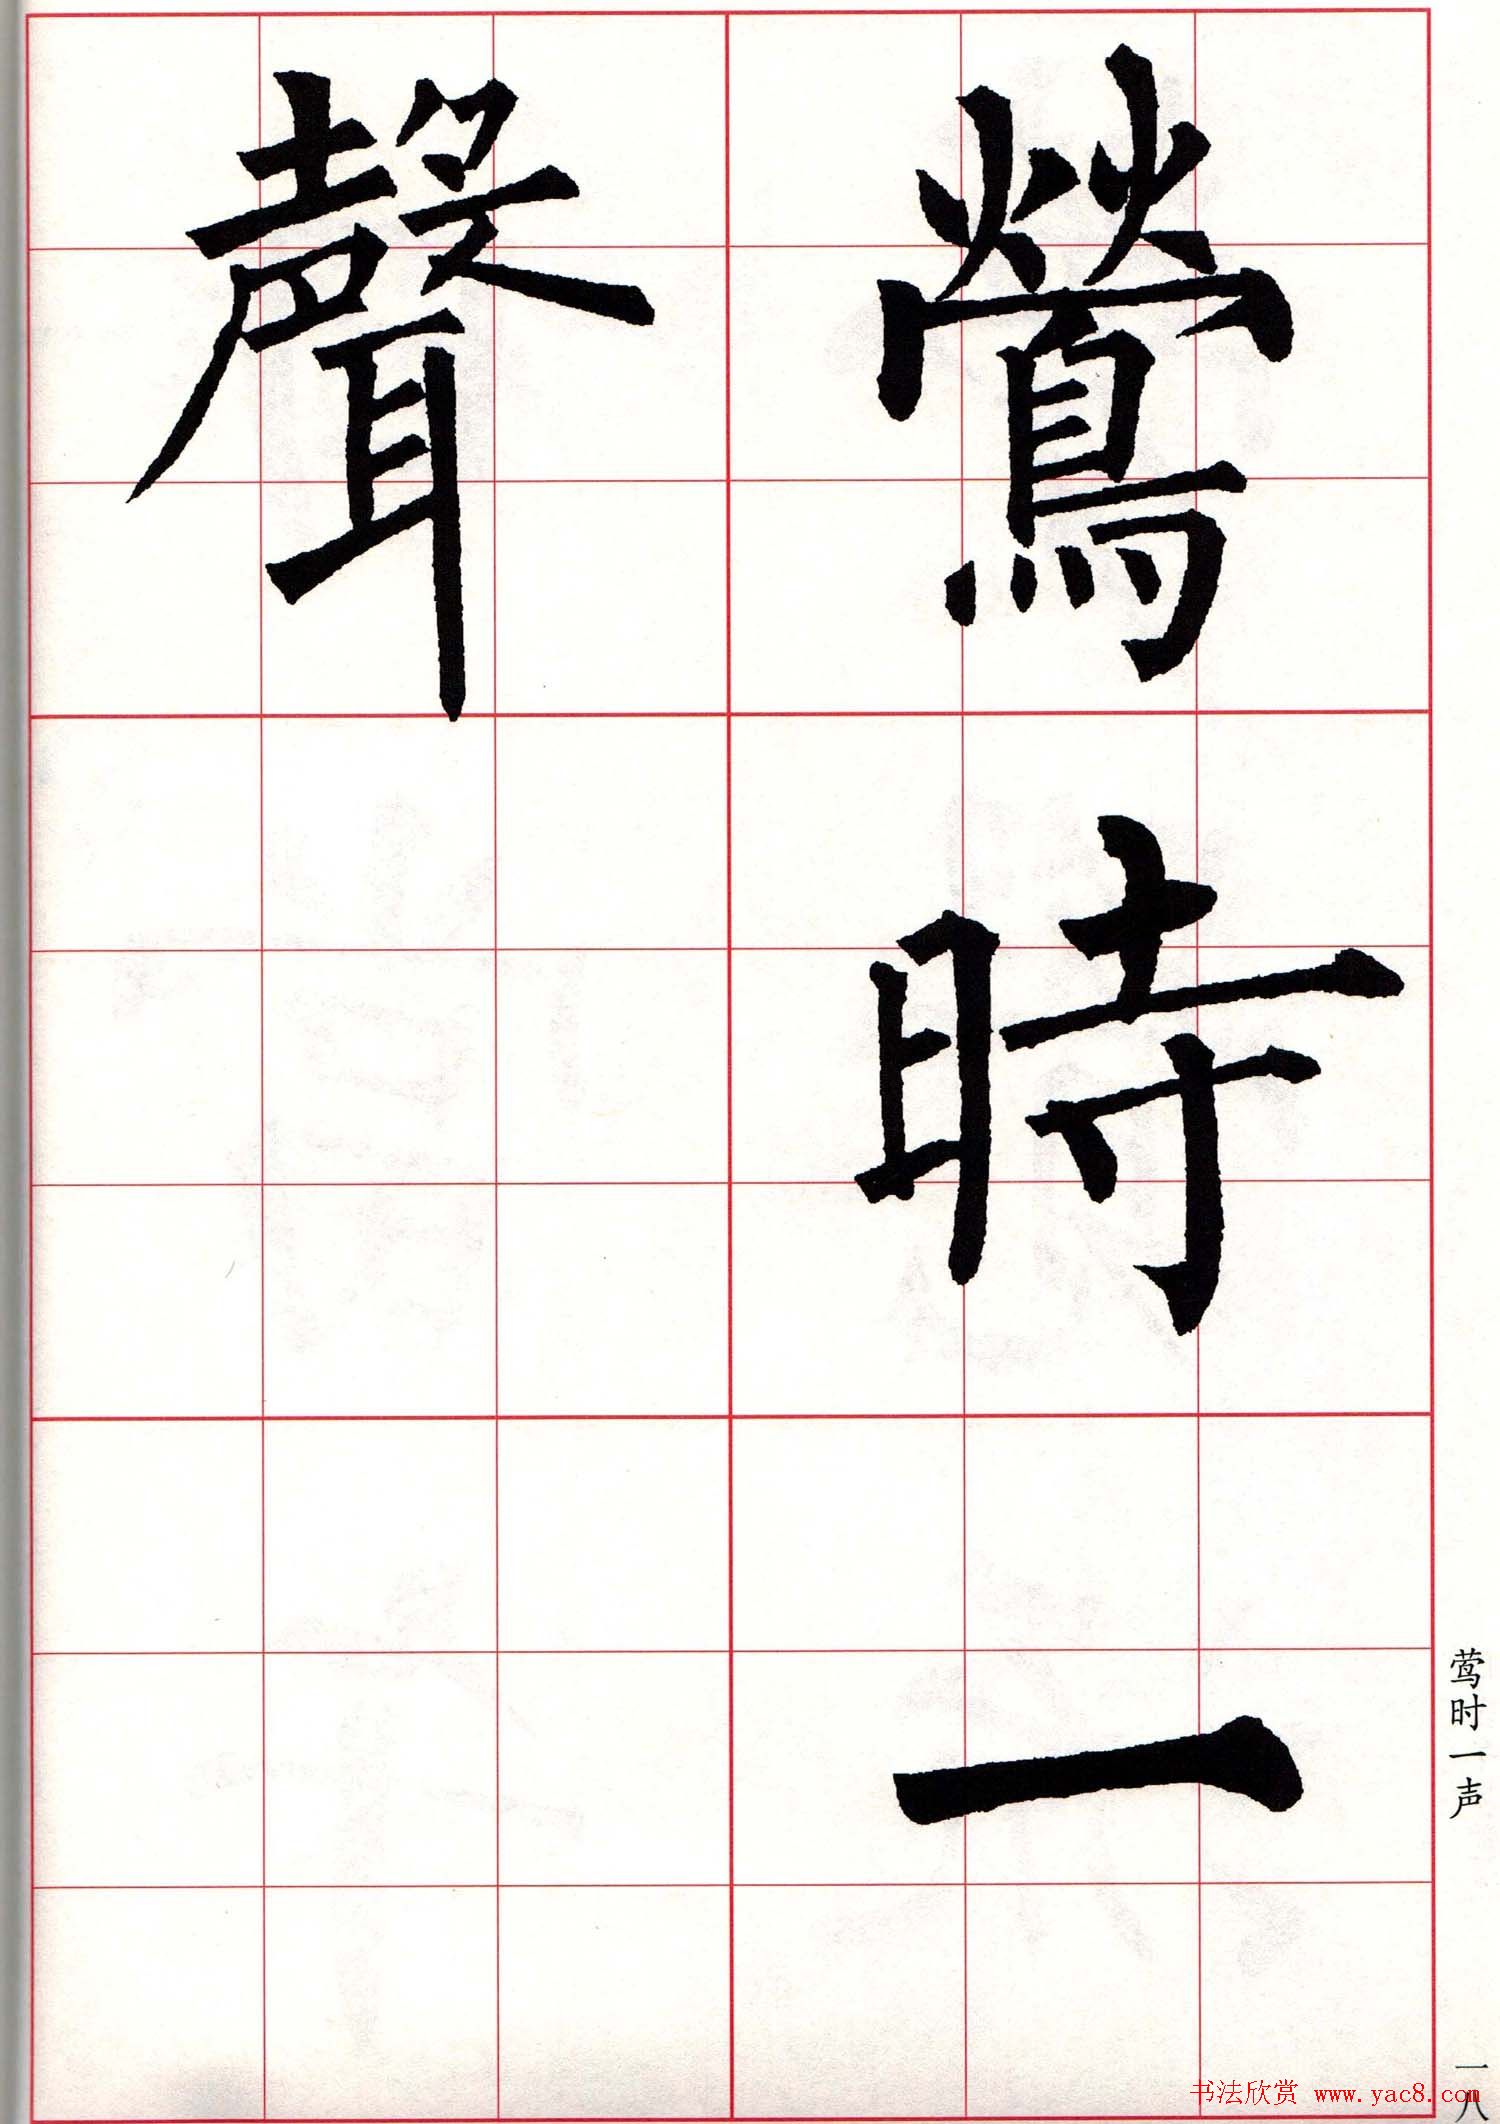 鶯時一
聲
莺时一声
一八
书法欣赏 www.yac8.com